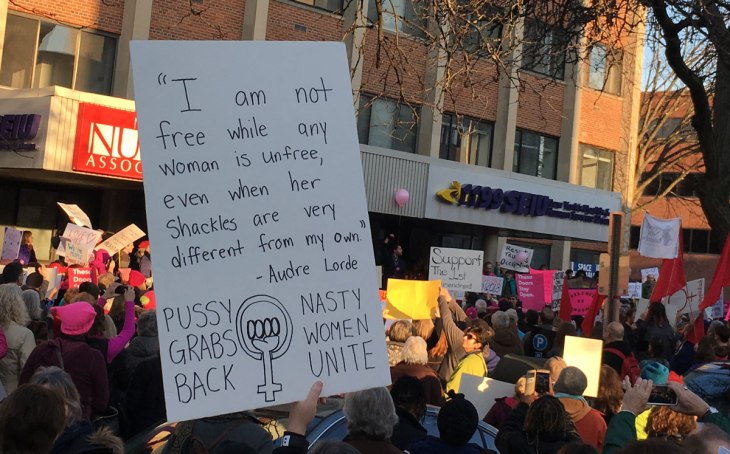 "I am not
free while any
woman is unfree,
even when her
shackles are very
different from my own."
- Audre Lorde
PUSSY
GRABS
BACK
NASTY
WOMEN
UNITE
SEIU
NU
ASSOC
1199 SEIU
Support
The 1st
These
Doors
Stay
Open